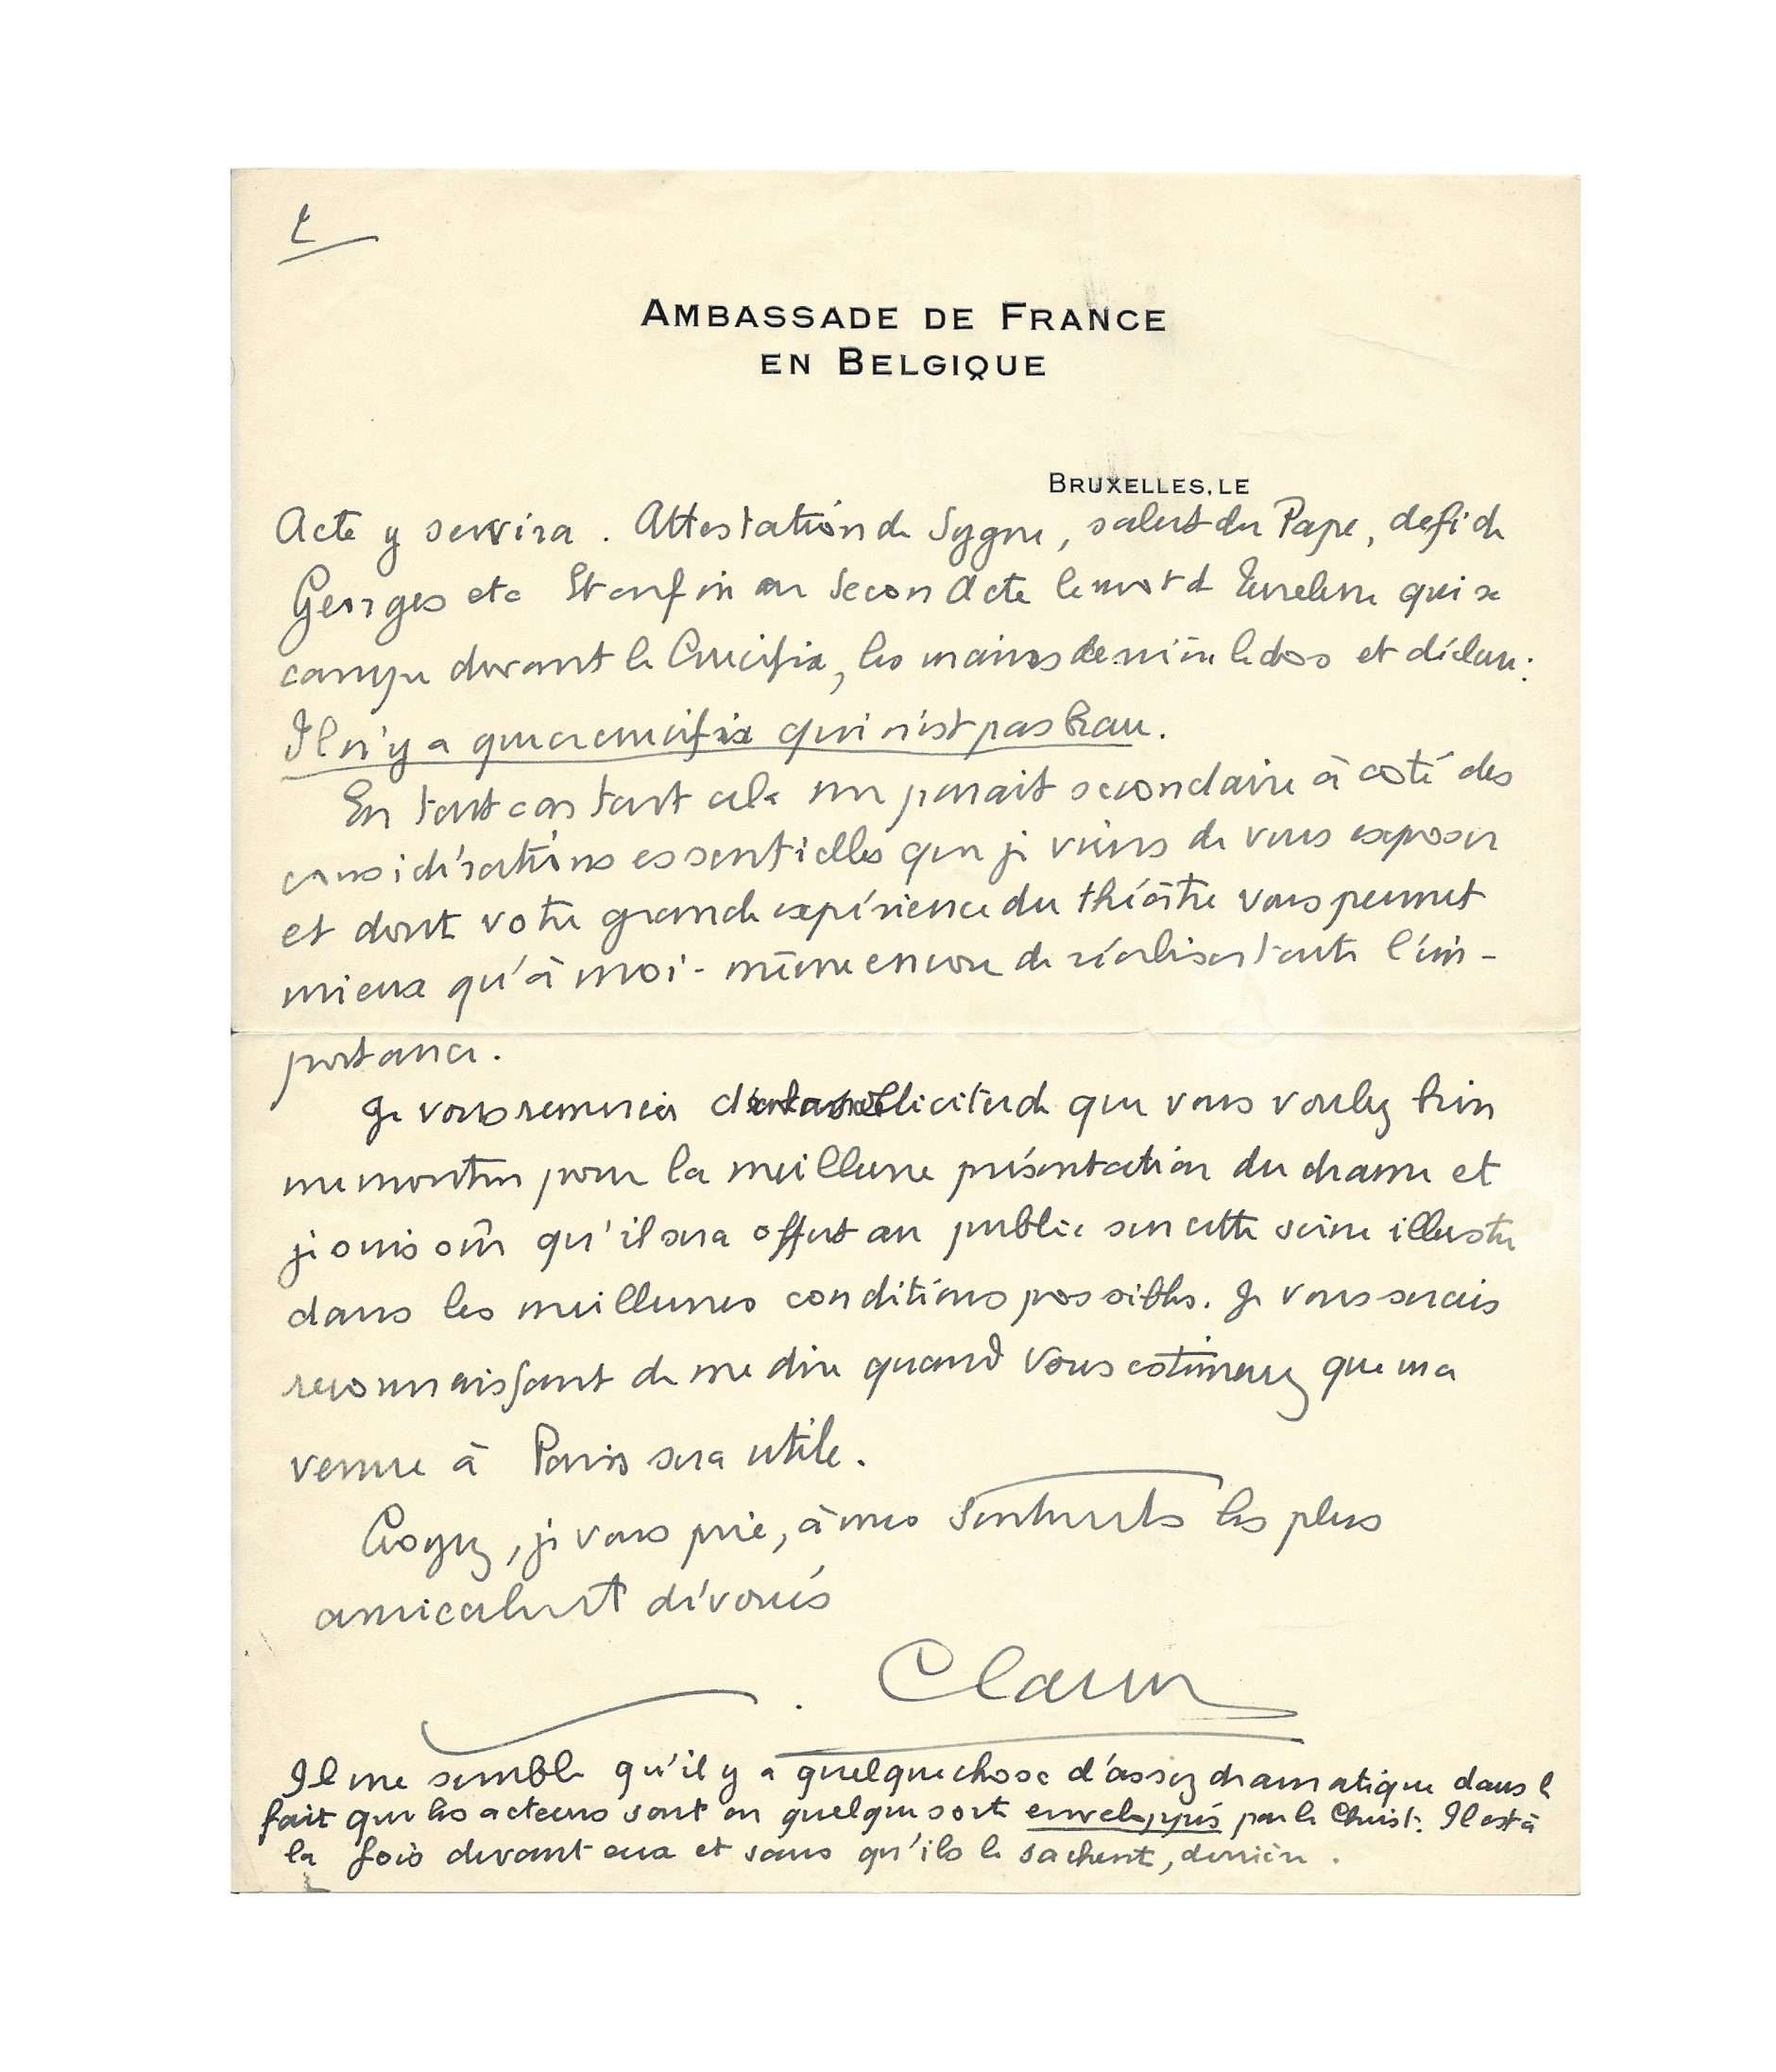 AMBASSADE DE FRANCE
EN BELGIQUE
BRUXELLES, LE
Acte y servira. Attestation de Sygne, salut du Pape, defi de
Georges etc Et enfin au Second Acte le mot de Turelure qui se
campe devant le Crucifix, les mains derrière le dos et déclare:
Il n'y a que ce crucifix qui n'est pas beau.
En tout cas tout cela me parait secondaire à coté des
considérations essentielles que je viens de vous exposer
et dont votre grande expérience du théâtre vous permet
mieux qu'à moi-même encore de réaliser toute l'im-
portance.
Je vous remercie de la sollicitude que vous voulez bien
me montrer pour la meilleure présentation du drame et
je suis sûr qu'il sera offert au public sur cette scène illustre
dans les meilleures conditions possibles. Je vous serais
reconnaissant de me dire quand vous estimerez que ma
venue à Paris sera utile.
Croyez, je vous prie, à mes sentiments les plus
amicalement dévoués
Il me semble qu'il y a quelque chose d'assez dramatique dans le
fait que les acteurs sont en quelque sorte enveloppés par le Christ. Il est à
la fois devant eux et sans qu'ils le sachent, derrière.